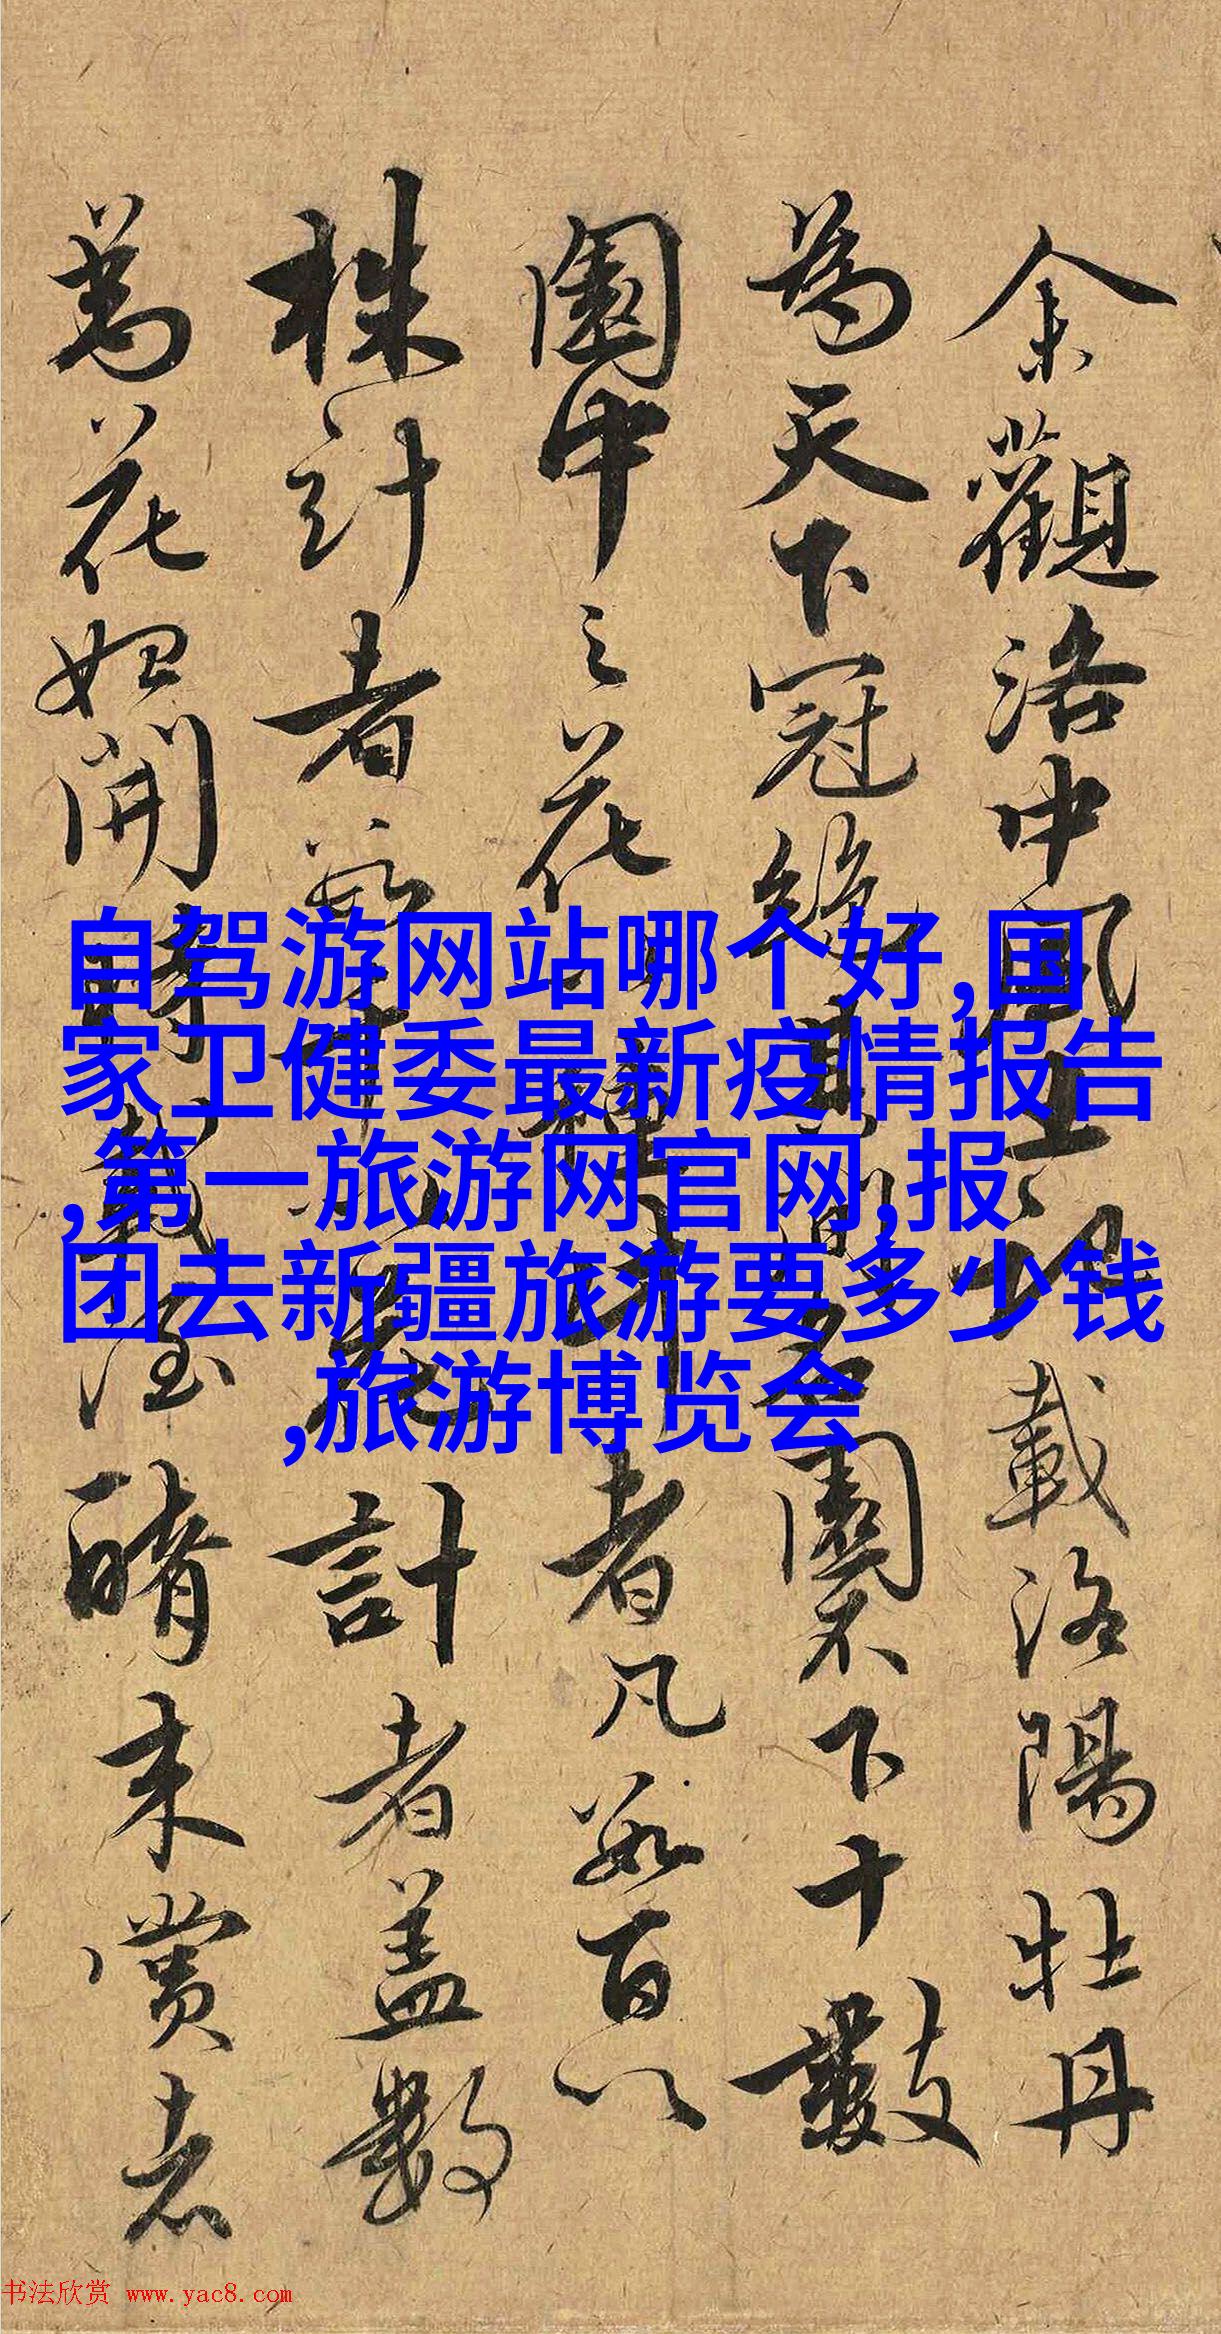 余觀洛中風土載洛陽牡丹
為天下冠絕其名園不下十數
園中之花種計者凡數百以
株計者計者蓋數
萬花始開載醑来賞者
自驾游网站哪个好,国
家卫健委最新疫情报告
,第一旅游网官网,报
团去新疆旅游要多少钱
,旅游博览会
书法欣赏 www.yac8.com